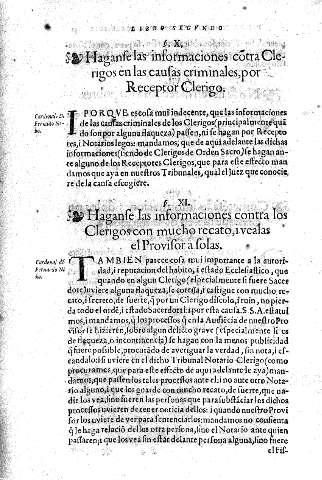 LIBRO SEGVNDO
§. X.
Haganse las informaciones cõtra Cle-
rigos en las causas criminales, por
Receptor Clerigo.
Cardenal D.
Fernando Ni
ño.
PORQVE es cosa mui indecente, que las informaciones
de las causas criminales de los Clerigos (principalmente quã
do son por alguna flaqueza) passen, ni se hagan por Recepto-
res, i Notarios legos: mandamos, que de aqui adelante las dichas
informaciones siendo de Clerigos de Orden Sacro, se hagan an-
te alguno de los Receptores Clerigos, que para este efecto man-
damos que aya en nuestros Tribunales, qual el Juez que conocie-
re de la causa escogiere.
§. XI.
Haganse las informaciones contra los
Clerigos con mucho recato, i vealas
el Provisor a solas.
Cardenal D.
Fernãdo Ni
ño.
TAMBIEN parece cosa mui importante a la autori-
dad, i reputacion del habito, i estado Ecclesiastico, que
quando en algun Clerigo (especialmente si fuere Sacer
dote) uviere alguna flaqueza, se corrija, i castigue con mucho re-
cato, i secreto, de suerte, q̃ por un Clerigo discolo, i ruin, no pierda
todo el ordẽ, i estado sacerdotal: i por esta causa. S.S.A. estatui
mos, i mandamos, q̃ los processos q̃ en la Audiẽcia de nuestro Pro
visor se hizieren, sobre algun delicto grave (especialmente si es
de flaqueza, o incontinẽcia) se hagan con la menos publicidad
q̃ fuere possible, procurãdo de averiguar la verdad, sin nota, i es-
candalo: i si uviere en el dicho Tribunal Notario Clerigo (como
procuramos, que para este efecto de aqui adelante le aya) man-
damos, que passen los tales processos ante el: i no ante otro Nota-
rio alguno, i que los guarde con mucho recato, de suerte, que na-
die los vea, sino fueren las personas que para substãciar los dichos
processos uvieren de tener noticia dellos: i quando nuestro Provi
sor los uviere de ver para sentenciarlos: mandamos no consienta
q̃ le haga relaciõ dellos otra persona, sino el Notario ante quien
passaren; i que los vea sin estar delante persona alguna, sino fuere
el Fis-